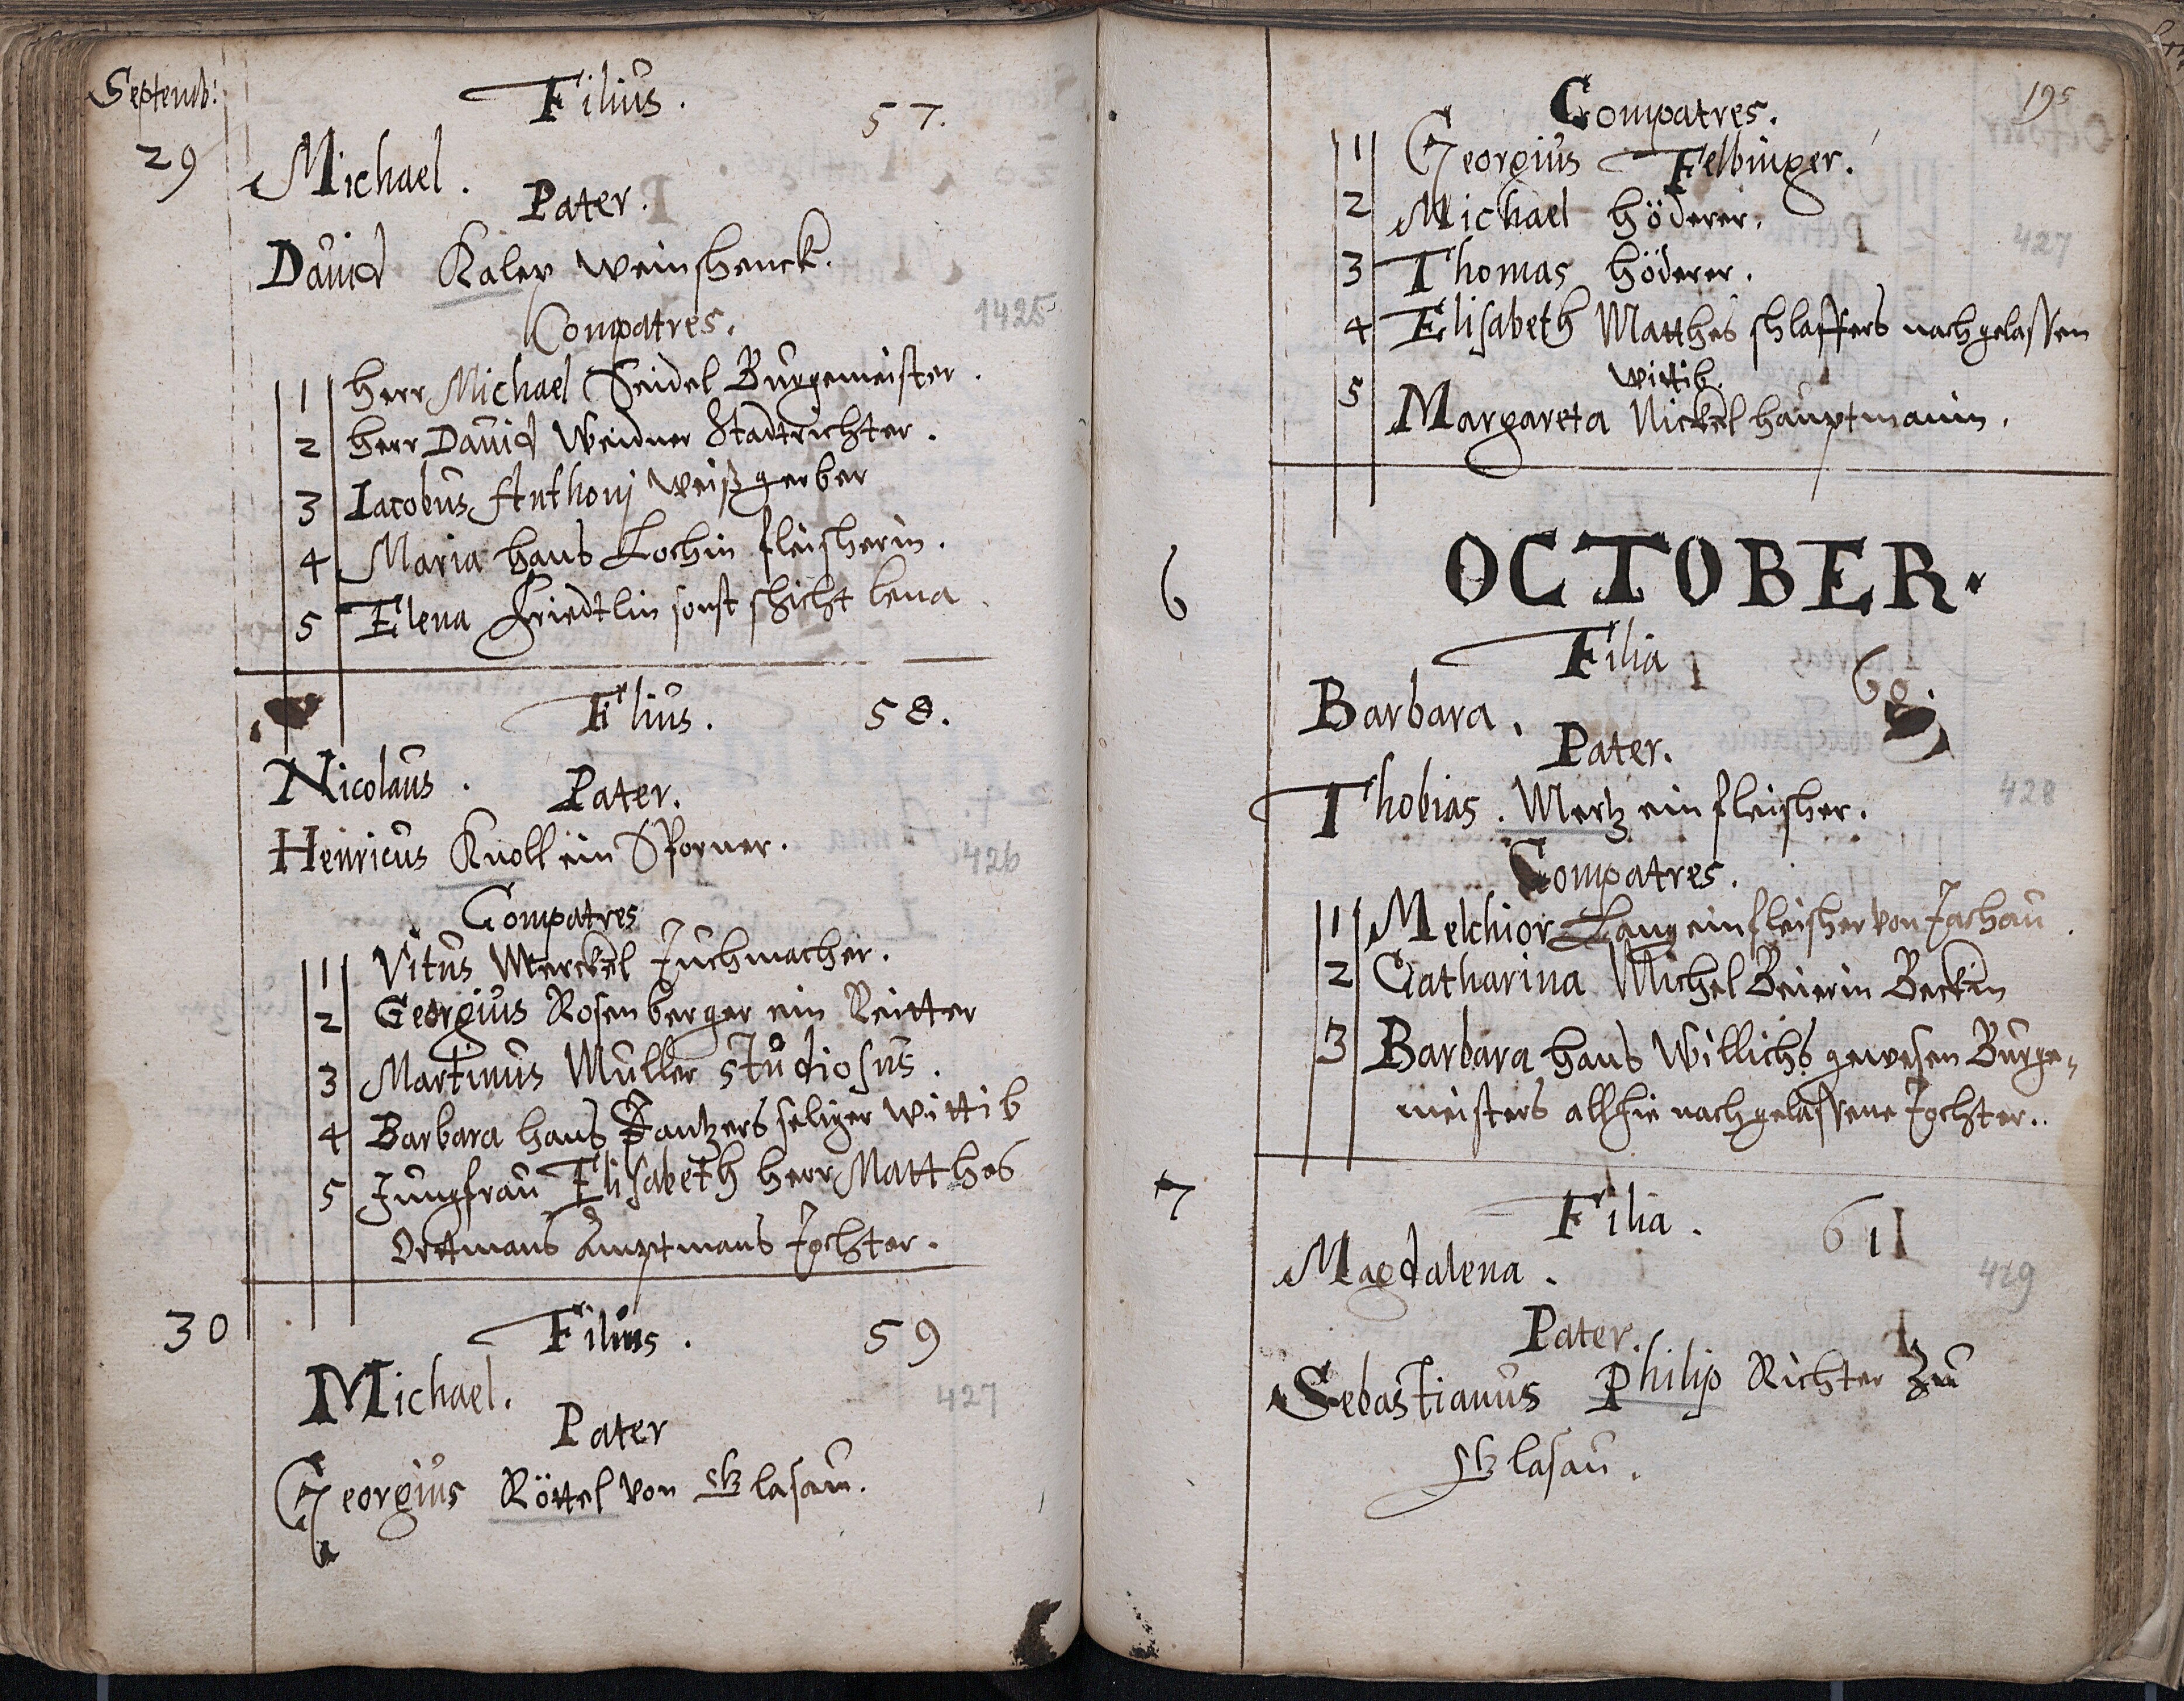 Septemb:
Filius.
57.
29
Michael.
Pater.
David Kaler weinschenck.
Compatres.
1425
1 herr Michael Seidel Burgemeister.
2 herr David Weidner Stadtrichter.
3 Iacobus Anthonj weißgerber
4 Maria hans Lochin fleischerin.
5 Elena Friedtlin sonst schicht lena
Filius.
58.
Nicolaus.
Pater.
Henricus Knoll ein Sporner.
426
Compatres
1 Vitus Merckel Tuchmacher.
2 Georgius Rosenberger ein Reitter
3 Martinus Muller studiosus.
4 Barbara hans Dantzers seliger wittib
5 Jungfrau Elisabeth herr Matthes
Ortmans Amptmans Tochter.
30
Filius.
59
Michael.
427
Pater
Georgius Röttel von lasau.
195
Compatres.
1 Georgius Felbinger.
2 Michael höderer.
427
3 Thomas höderer.
4 Elisabeth Matthes schlaffers nachgelassen
wittib.
5 Margareta Nickel hauptmanin.
OCTOBER.
6
Filia
60.
Barbara.
Pater.
428
Thobias. Mertz ein fleischer.
Compatres.
1 Melchior Lang ein fleischer von Tachau.
2 Catharina Michel Beierin Beckin
3 Barbara hans Willichs gewesen Burge-
meisters allhie nachgelassene Tochter..
7
Filia.
61
Magdalena.
429
Pater.
Sebastianus Philip Richter zu
lasau.